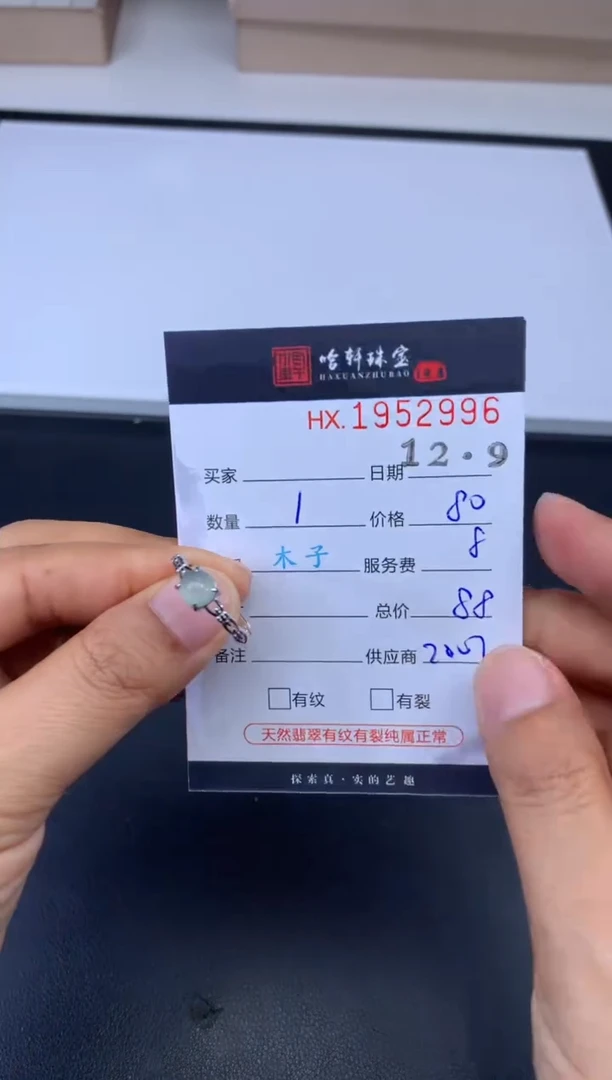 哈轩珠宝
HAXUANZHUBAO
HX.1952996
买家 日期 12.9
数量 1 价格 80
木子 服务费 8
总价 88
备注 供应商 2007
有纹 有裂
天然翡翠有纹有裂纯属正常
探索真·实的艺趣